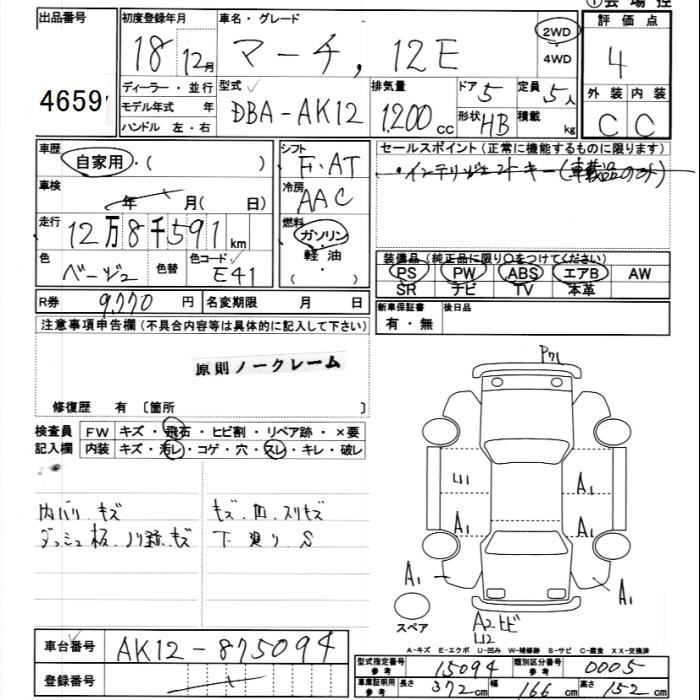 ①会場控
出品番号
初度登録年月
車名・グレード
評価点
18 12月
マーチ, 12E
2WD
4WD
4
ディーラー・並行
型式
排気量
ドア 5
定員 5人
外装 内装
4659
モデル年式 年
DBA-AK12
1,200 cc
形状 HB
積載 kg
C C
ハンドル 左・右
車歴
自家用・( )
シフト
F・AT
セールスポイント(正常に機能するものに限ります)
・インテリジェントキー(車載品のみ)
車検
年 月( 日)
冷房
AAC
走行
12万8千591km
燃料
ガソリン
軽油
( )
色
ベージュ
色替
色コード
E41
装備品(純正品に限り○をつけてください)
PS PW ABS エアB AW
SR ナビ TV 本革
R券 9,770円 名変期限 月 日
新車保証書 後日品
有・無
注意事項申告欄(不具合内容等は具体的に記入して下さい)
原則ノークレーム
修復歴 有 〔箇所 〕
検査員 FW キズ・飛石・ヒビ割・リペア跡・×要
記入欄 内装 キズ・汚レ・コゲ・穴・スレ・キレ・破レ
内バリ キズ
キズ.凹.スリキズ
ダッシュ板.ノリ跡.キズ
下廻り S
P71
U1
A1
A1
A1
A1
A1
スペア
A2 ヒビ
U2
A-キズ E-エクボ U-凹み W-補修跡 S-サビ C-腐食 XX-交換済
車台番号 AK12-875094
登録番号
型式指定番号 参考 15094
類別区分番号 参考 0005
車庫証明用 参考 長さ 372cm 幅 166cm 高さ 152cm